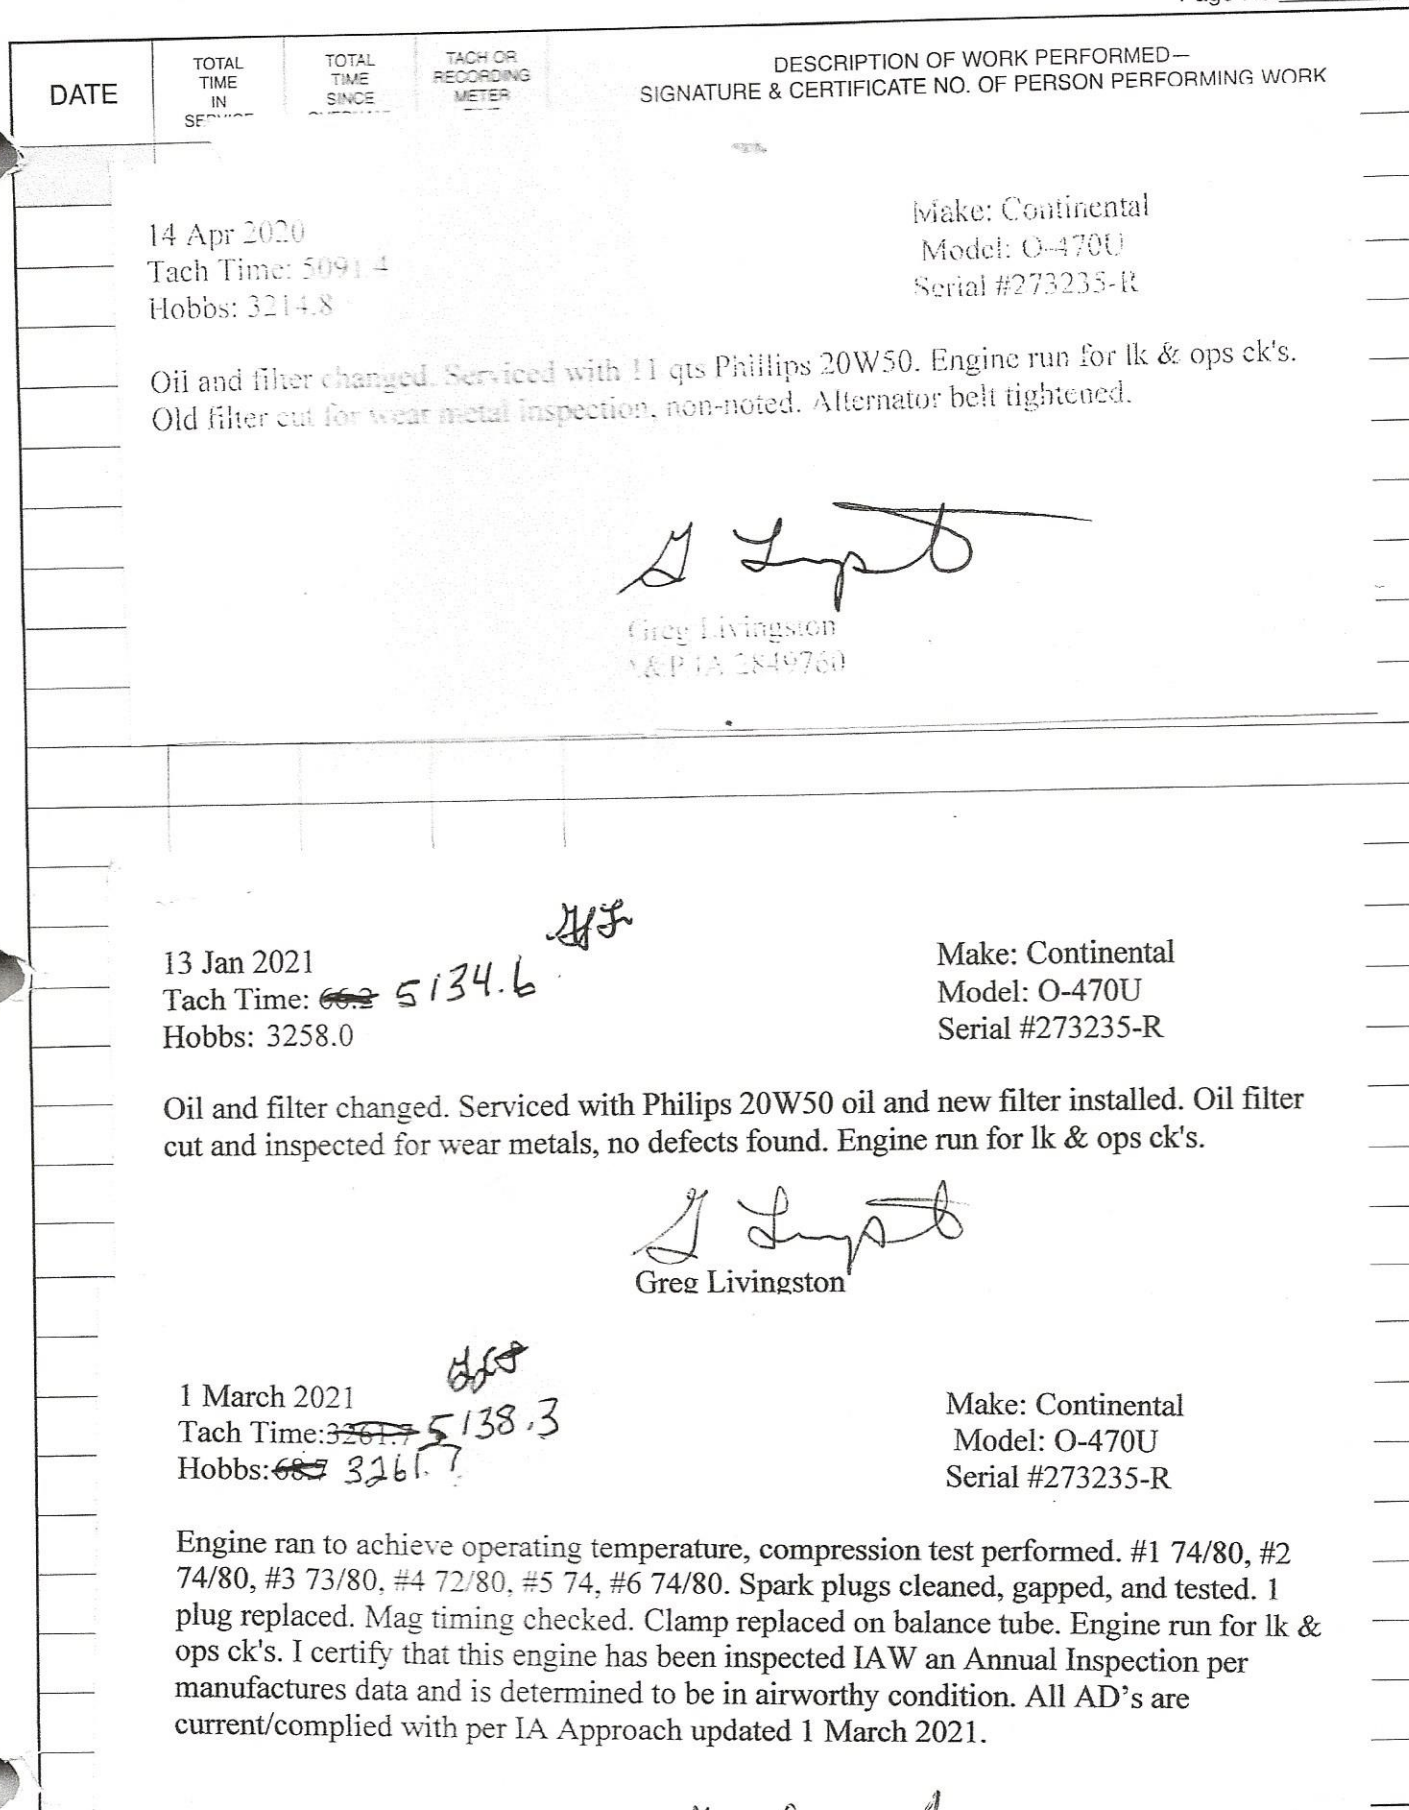 Page
DATE
TOTAL TIME IN SERVICE
TOTAL TIME SINCE
TACH OR RECORDING METER
DESCRIPTION OF WORK PERFORMED—
SIGNATURE & CERTIFICATE NO. OF PERSON PERFORMING WORK
14 Apr 2020
Tach Time: 5091.4
Hobbs: 3214.8
Make: Continental
Model: O-470U
Serial #273235-R
Oil and filter changed. Serviced with 11 qts Phillips 20W50. Engine run for lk & ops ck's.
Old filter cut for wear metal inspection, non-noted. Alternator belt tightened.
Greg Livingston
A&P IA 2849760
13 Jan 2021
Tach Time: 66.2 5134.6
Hobbs: 3258.0
Make: Continental
Model: O-470U
Serial #273235-R
Oil and filter changed. Serviced with Philips 20W50 oil and new filter installed. Oil filter
cut and inspected for wear metals, no defects found. Engine run for lk & ops ck's.
Greg Livingston
1 March 2021
Tach Time:3261.7 5138.3
Hobbs: 3261.7
Make: Continental
Model: O-470U
Serial #273235-R
Engine ran to achieve operating temperature, compression test performed. #1 74/80, #2
74/80, #3 73/80, #4 72/80, #5 74, #6 74/80. Spark plugs cleaned, gapped, and tested. 1
plug replaced. Mag timing checked. Clamp replaced on balance tube. Engine run for lk &
ops ck's. I certify that this engine has been inspected IAW an Annual Inspection per
manufactures data and is determined to be in airworthy condition. All AD’s are
current/complied with per IA Approach updated 1 March 2021.